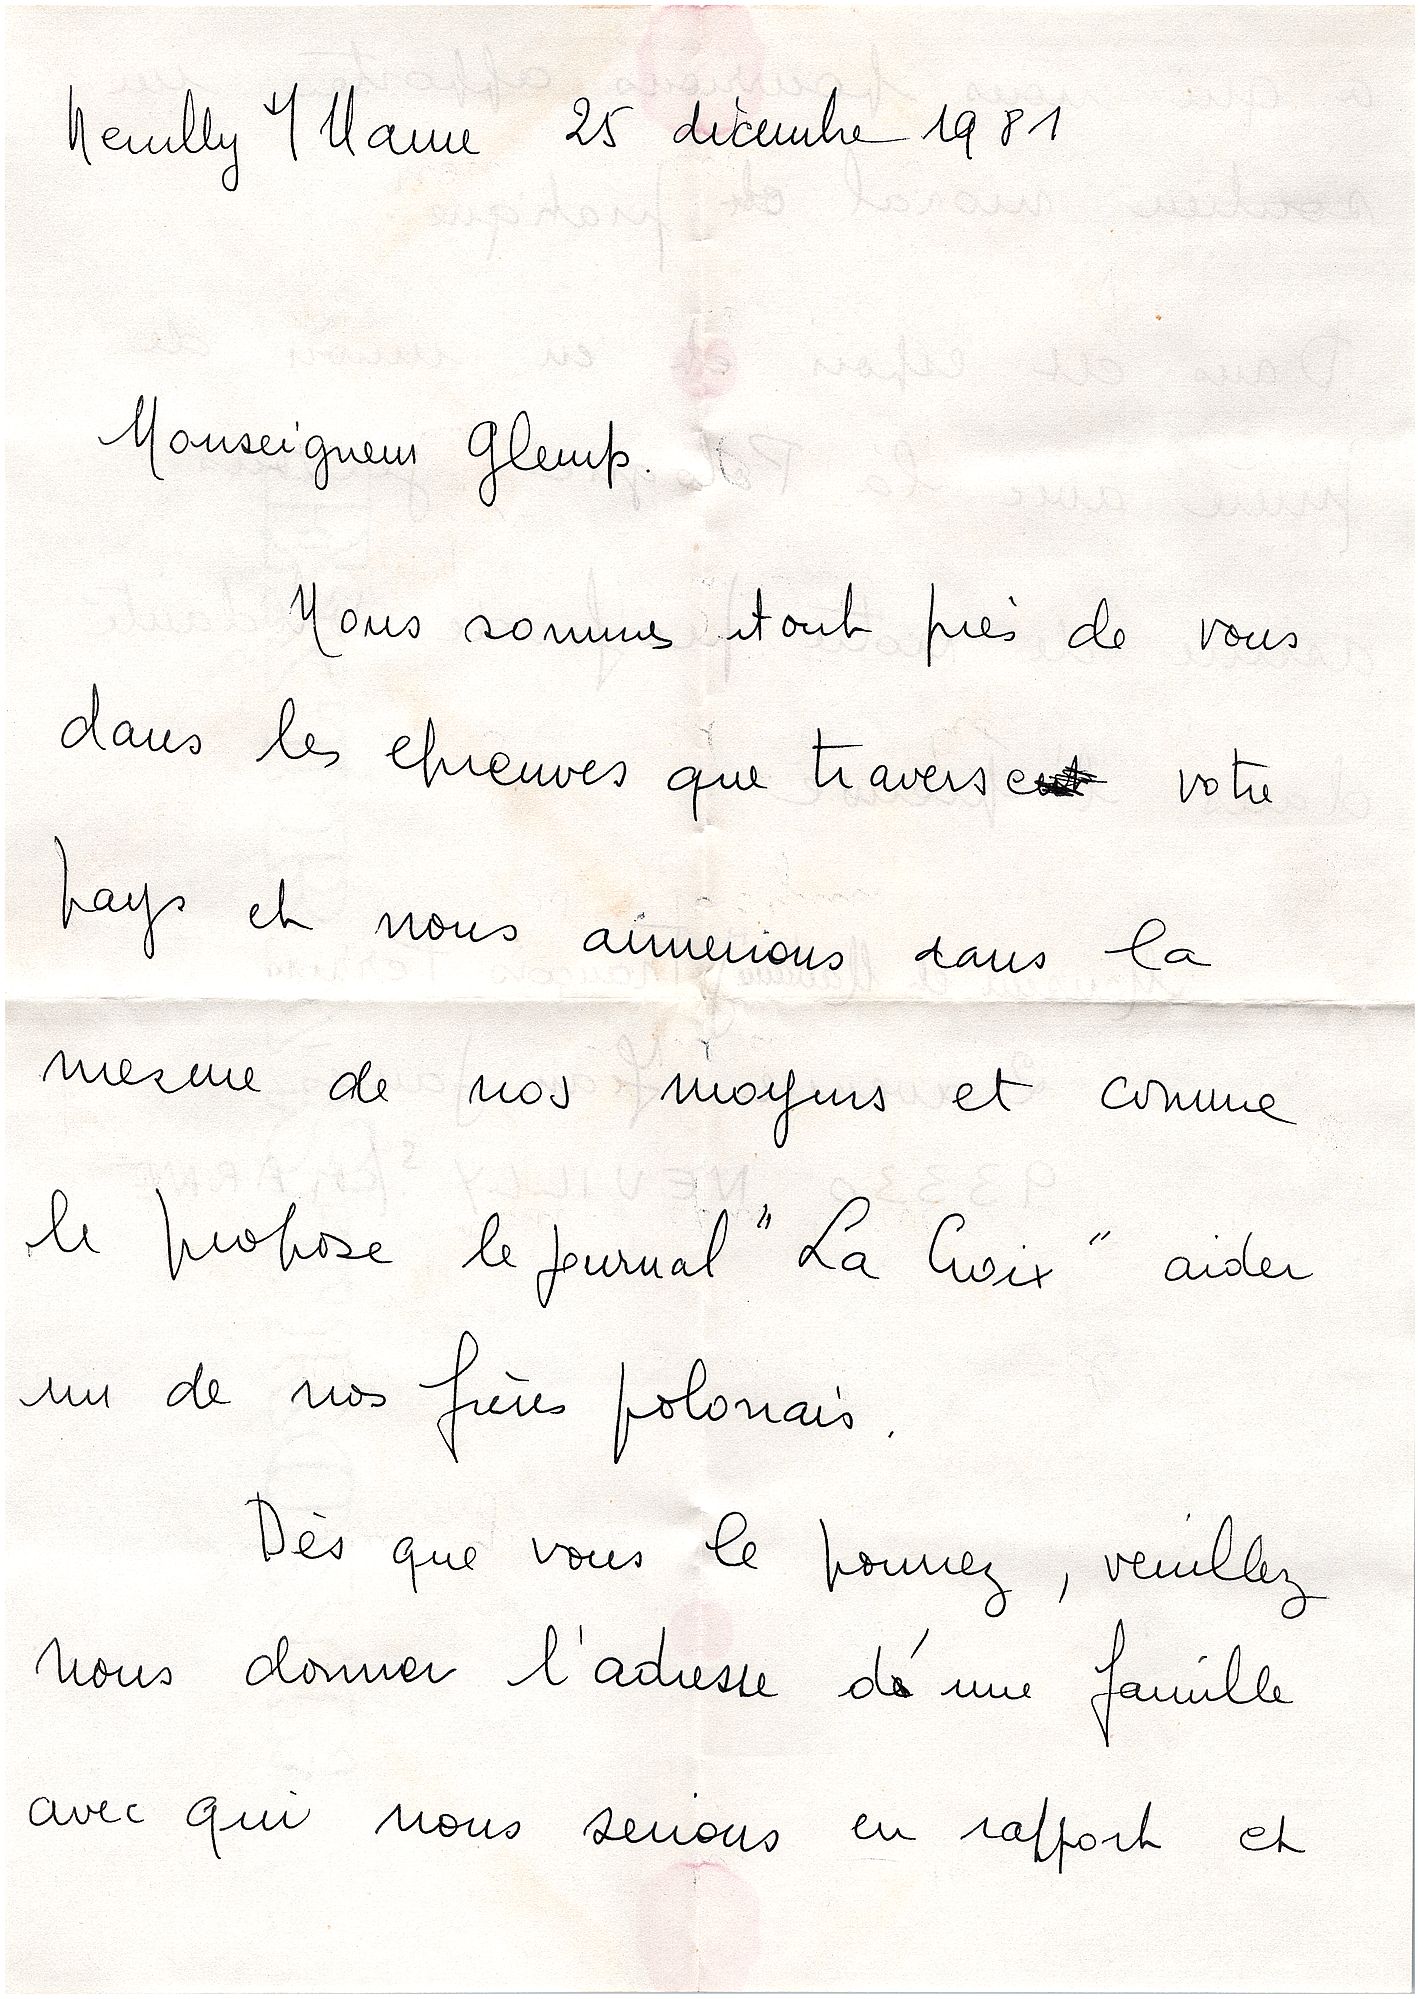 Neuilly s/ Marne 25 décembre 1981
Monseigneur Glemp.
Nous sommes tout près de vous
dans les epreuves que traverse votre
pays et nous aimerions dans la
mesure de nos moyens et comme
le propose le journal "La Croix" aider
un de nos frères polonais.
Dès que vous le pourrez, veuillez
nous donner l'adresse d'une famille
avec qui nous serions en rapport et